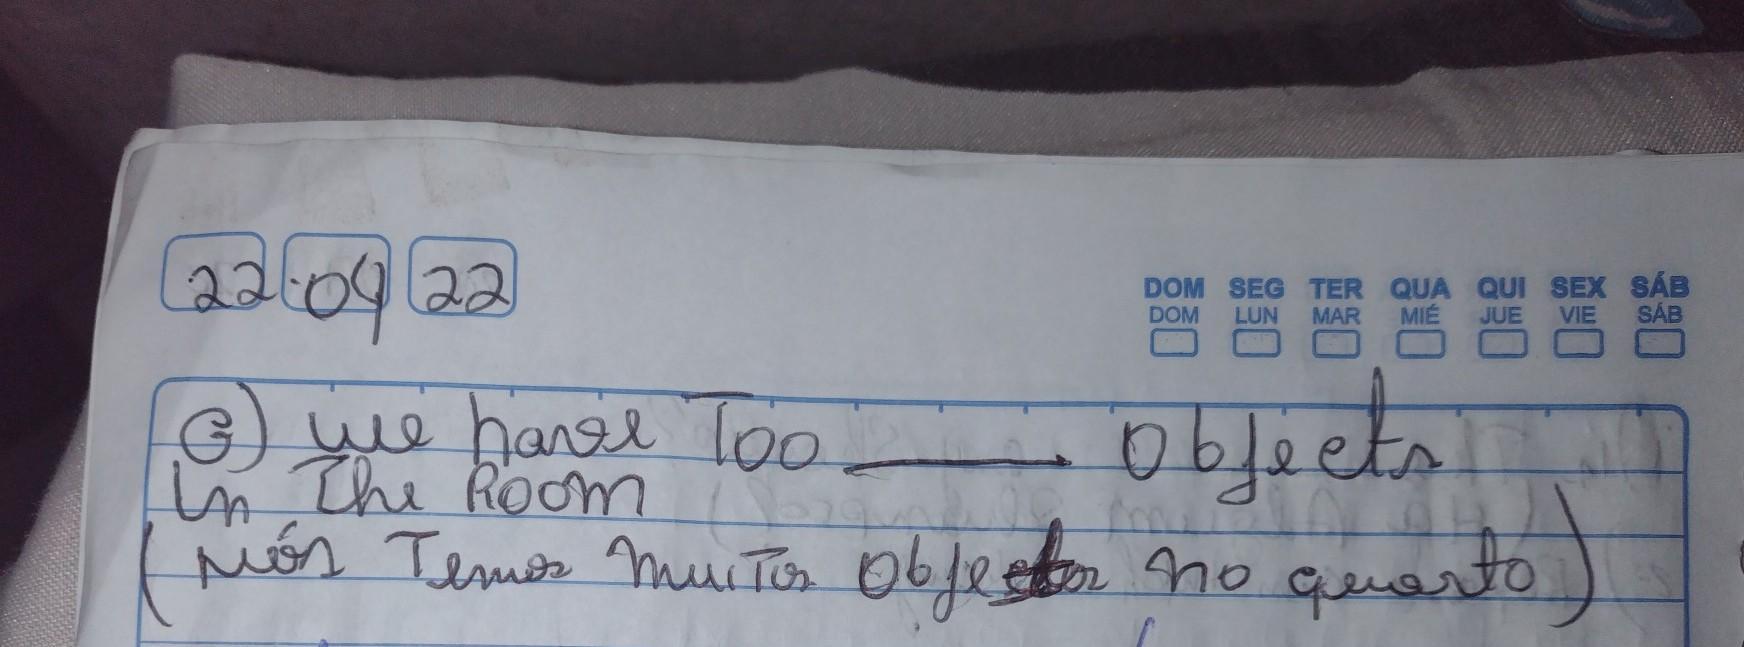 22 04 22
DOM SEG TER QUA QUI SEX SÁB
DOM LUN MAR MIÉ JUE VIE SÁB
G) We have Too ____ Objects
In The Room
(Nós Temos muiTos Objectos no quarto)